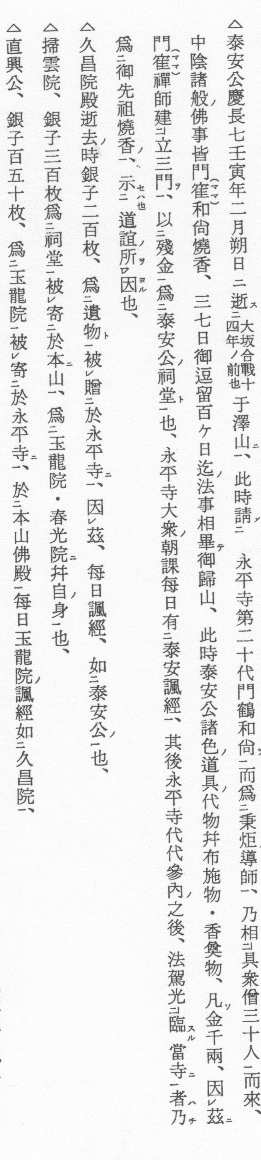 △泰安公慶長七壬寅年二月朔日ニ逝ス大坂合戰十四年ノ前也于澤山ニ、此時請ニ 永平寺第二十代門鶴和尙ヲ一而爲ニ秉炬導師一、乃相ニ具衆僧三十人一而來、
中陰諸般ノ佛事皆門寉(ママ)和尙燒香、三七日御逗留百ケ日迄ノ法事相畢テ御歸山、此時泰安公諸色ノ道具ノ代物幷布施物・香奠物、凡ソ金千兩、因レ茲ニ
門寉(ママ)禪師建ニ立三門ヲ一、以ニ殘金一爲ニ泰安公ノ祠堂ト一也、永平寺大衆ノ朝課每日有ニ泰安諷經一、其後永平寺代代參內ノ之後、法駕光ニ臨スル當寺ニ一者ハ乃チ
爲ニ御先祖燒香一、示セハ也ニ道誼ノ所ヲヨル因也、
△久昌院殿逝去ノ時銀子二百枚、爲ニ遺物ト一被レ贈ニ於永平寺ニ一、因レ茲、每日諷經、如ニ泰安公ノ一也、
△掃雲院、銀子三百枚爲ニ祠堂一被レ寄ニ於本山ニ一、爲ニ玉龍院・春光院幷自身ノ一也、
△直興公、銀子百五十枚、爲ニ玉龍院一被レ寄ニ於永平寺ニ一、於ニ本山佛殿一每日玉龍院ノ諷經如ニ久昌院一、